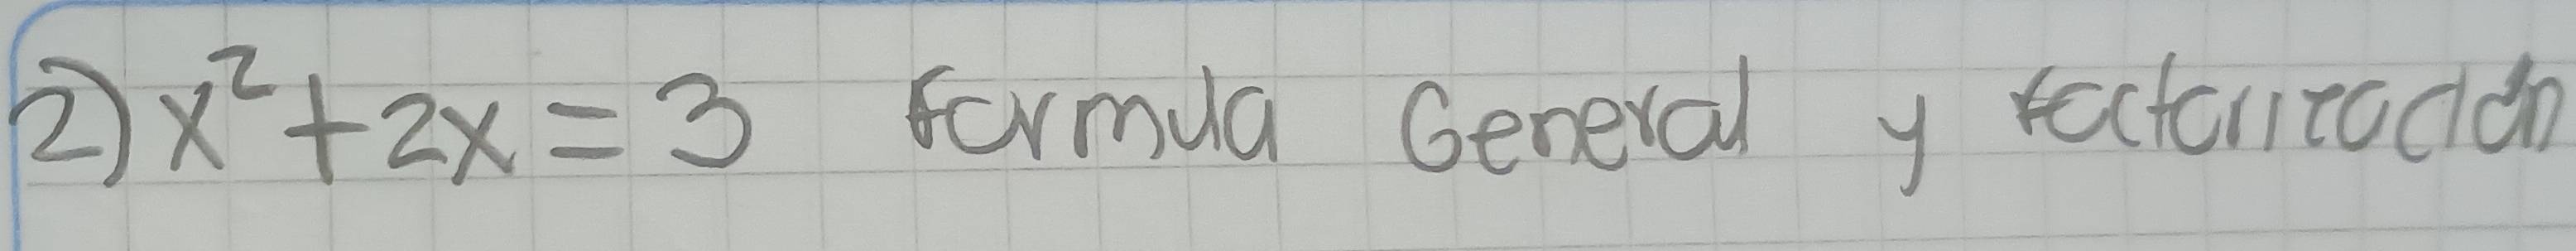 2) x² + 2x = 3 formula General y factorización